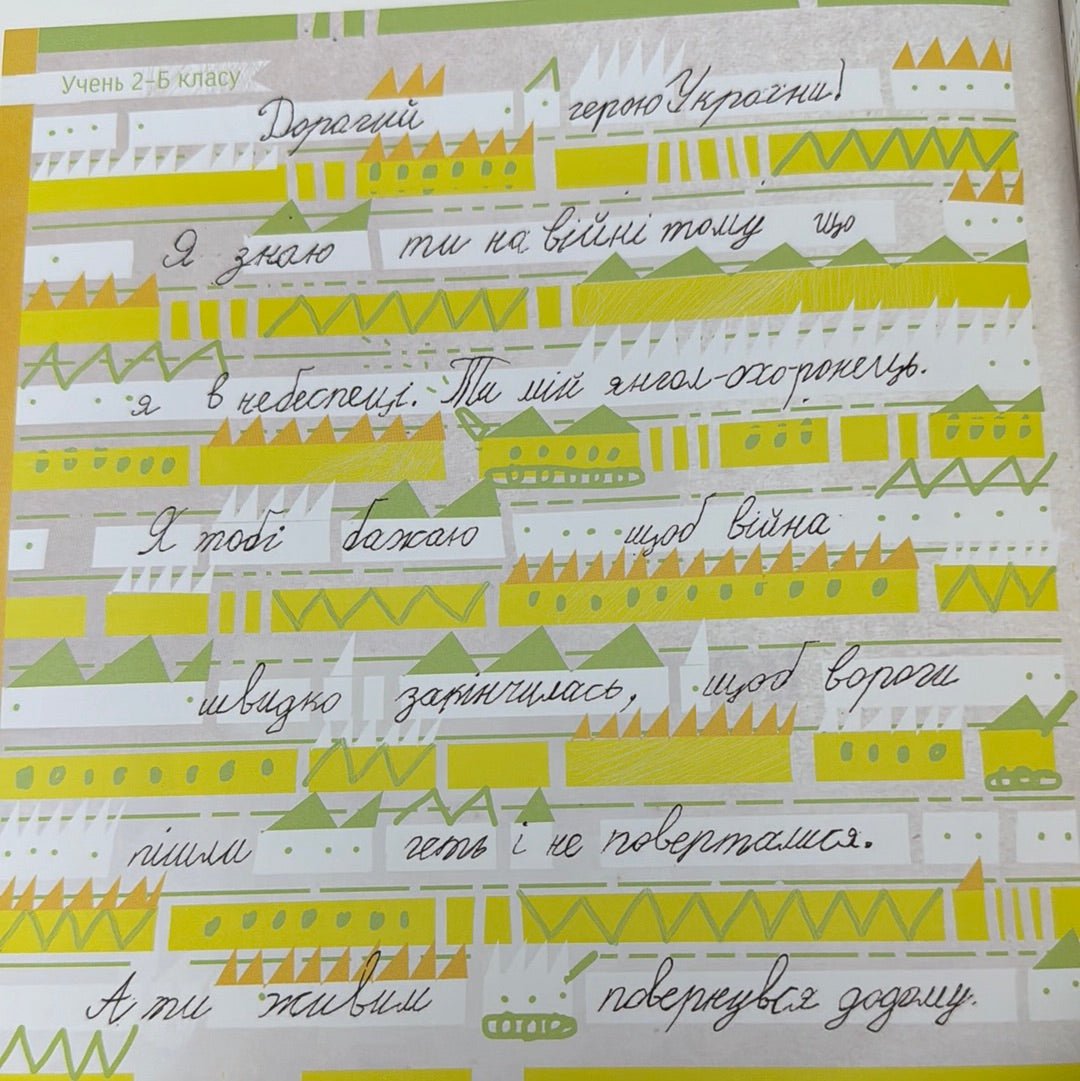 Учень 2-Б класу
Дорогий герою України!
Я знаю ти на війні тому що
я в небеспеці. Ти мій янгол-охоронець.
Я тобі бажаю щоб війна
швидко закінчилась, щоб вороги
пішли геть і не поверталися.
А ти живим повернувся додому.